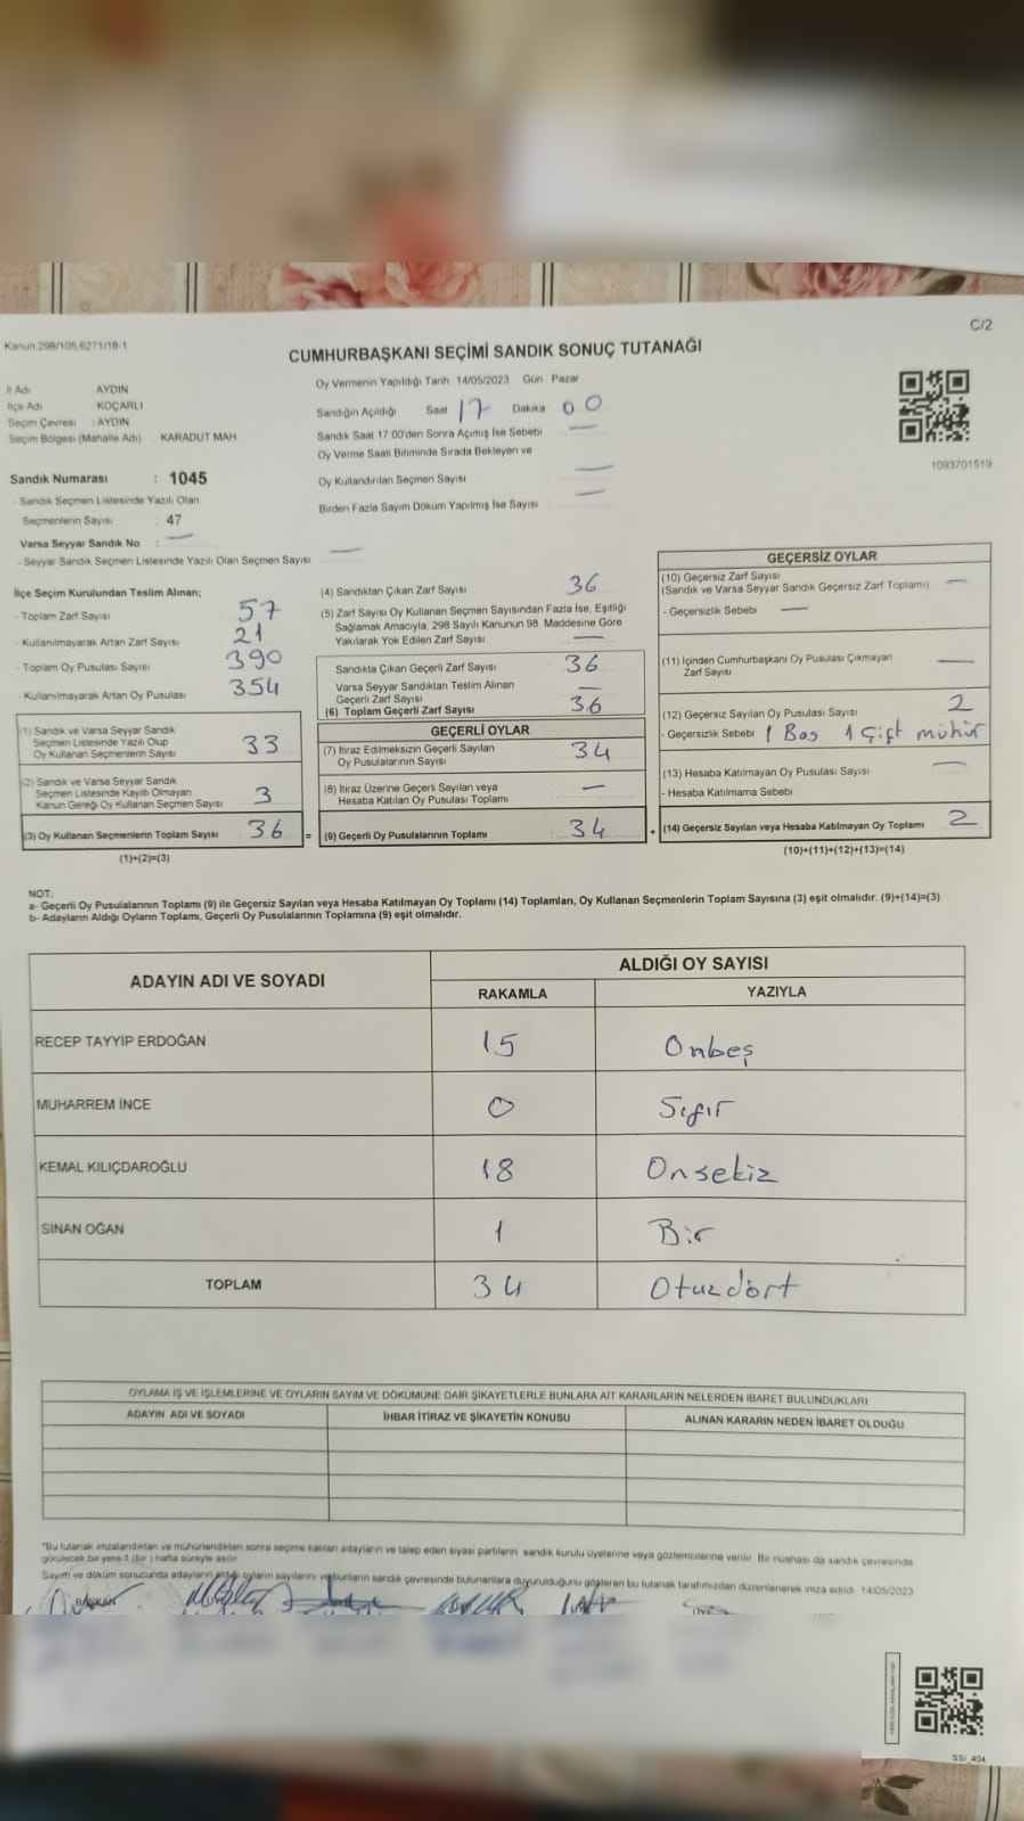 C/2
Kanun 298/105,6271/18-1
CUMHURBAŞKANI SEÇİMİ SANDIK SONUÇ TUTANAĞI
İl Adı AYDIN
İlçe Adı KOÇARLI
Seçim Çevresi : AYDIN
Seçim Bölgesi (Mahalle Adı) KARADUT MAH
Sandık Numarası : 1045
- Sandık Seçmen Listesinde Yazılı Olan
Seçmenlerin Sayısı : 47
Varsa Seyyar Sandık No : —
- Seyyar Sandık Seçmen Listesinde Yazılı Olan Seçmen Sayısı —
Oy Vermenin Yapıldığı Tarih 14/05/2023 Gün Pazar
Sandığın Açıldığı Saat 17 Dakika 00
Sandık Saat 17:00'den Sonra Açılmış İse Sebebi —
Oy Verme Saati Bitiminde Sırada Bekleyen ve
Oy Kullandırılan Seçmen Sayısı —
Birden Fazla Sayım Döküm Yapılmış İse Sayısı —
1093701519
İlçe Seçim Kurulundan Teslim Alınan;
- Toplam Zarf Sayısı 57
- Kullanılmayarak Artan Zarf Sayısı 21
- Toplam Oy Pusulası Sayısı 390
- Kullanılmayarak Artan Oy Pusulası 354
(1) Sandık ve Varsa Seyyar Sandık
Seçmen Listesinde Yazılı Olup
Oy Kullanan Seçmenlerin Sayısı 33
(2) Sandık ve Varsa Seyyar Sandık
Seçmen Listesinde Kayıtlı Olmayan
Kanun Gereği Oy Kullanan Seçmen Sayısı 3
(3) Oy Kullanan Seçmenlerin Toplam Sayısı 36 =
(1)+(2)=(3)
(4) Sandıktan Çıkan Zarf Sayısı 36
(5) Zarf Sayısı Oy Kullanan Seçmen Sayısından Fazla İse, Eşitliği
Sağlamak Amacıyla, 298 Sayılı Kanunun 98. Maddesine Göre
Yakılarak Yok Edilen Zarf Sayısı —
Sandıkta Çıkan Geçerli Zarf Sayısı 36
Varsa Seyyar Sandıktan Teslim Alınan
Geçerli Zarf Sayısı —
(6) Toplam Geçerli Zarf Sayısı 36
GEÇERLİ OYLAR
(7) İtiraz Edilmeksizin Geçerli Sayılan
Oy Pusulalarının Sayısı 34
(8) İtiraz Üzerine Geçerli Sayılan veya
Hesaba Katılan Oy Pusulası Toplamı —
(9) Geçerli Oy Pusulalarının Toplamı 34 +
GEÇERSİZ OYLAR
(10) Geçersiz Zarf Sayısı
(Sandık ve Varsa Seyyar Sandık Geçersiz Zarf Toplamı) —
- Geçersizlik Sebebi —
(11) İçinden Cumhurbaşkanı Oy Pusulası Çıkmayan
Zarf Sayısı —
(12) Geçersiz Sayılan Oy Pusulası Sayısı 2
- Geçersizlik Sebebi 1 Boş 1 Çift mühür
(13) Hesaba Katılmayan Oy Pusulası Sayısı —
- Hesaba Katılmama Sebebi
(14) Geçersiz Sayılan veya Hesaba Katılmayan Oy Toplamı 2
(10)+(11)+(12)+(13)=(14)
NOT:
a- Geçerli Oy Pusulalarının Toplamı (9) ile Geçersiz Sayılan veya Hesaba Katılmayan Oy Toplamı (14) Toplamları, Oy Kullanan Seçmenlerin Toplam Sayısına (3) eşit olmalıdır. (9)+(14)=(3)
b- Adayların Aldığı Oyların Toplamı, Geçerli Oy Pusulalarının Toplamına (9) eşit olmalıdır.
ADAYIN ADI VE SOYADI ALDIĞI OY SAYISI
RAKAMLA YAZIYLA
RECEP TAYYİP ERDOĞAN 15 Onbeş
MUHARREM İNCE 0 Sıfır
KEMAL KILIÇDAROĞLU 18 Onsekiz
SİNAN OĞAN 1 Bir
TOPLAM 34 Otuzdört
OYLAMA İŞ VE İŞLEMLERİNE VE OYLARIN SAYIM VE DÖKÜMÜNE DAİR ŞİKAYETLERLE BUNLARA AİT KARARLARIN NELERDEN İBARET BULUNDUKLARI
ADAYIN ADI VE SOYADI İHBAR İTİRAZ VE ŞİKAYETİN KONUSU ALINAN KARARIN NEDEN İBARET OLDUĞU
*Bu tutanak imzalandıktan ve mühürlendikten sonra seçime katılan adayların ve talep eden siyasi partilerin sandık kurulu üyelerine veya gözlemcilerine verilir. Bir nüshası da sandık çevresinde
görülecek bir yere 1 (bir) hafta süreyle asılır.
Sayım ve döküm sonucunda adayların aldığı oyların sayılarını ve bunların sandık çevresinde bulunanlara duyurulduğunu gösteren bu tutanak tarafımızdan düzenlenerek imza edildi. 14/05/2023
SSI_404